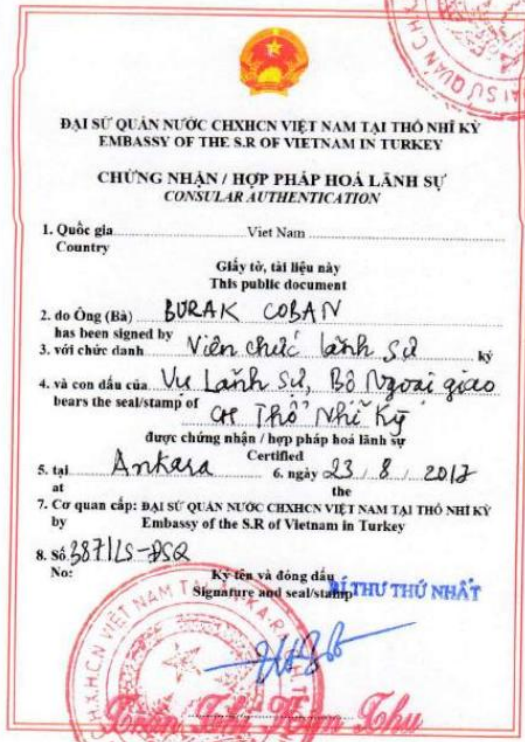 ĐẠI SỨ QUÁN NƯỚC CHXHCN VIỆT NAM TẠI THỔ NHĨ KỲ
EMBASSY OF THE S.R OF VIETNAM IN TURKEY
CHỨNG NHẬN / HỢP PHÁP HOÁ LÃNH SỰ
CONSULAR AUTHENTICATION
1. Quốc gia Viet Nam
Country
Giấy tờ, tài liệu này
This public document
2. do Ông (Bà) BURAK COBAN
has been signed by
3. với chức danh Viên chức lãnh sự ký
4. và con dấu của Vụ Lãnh Sự, Bộ Ngoại giao
bears the seal/stamp of
CH Thổ Nhĩ Kỳ
được chứng nhận / hợp pháp hoá lãnh sự
Certified
5. tại Ankara 6. ngày 23 / 8 / 2017
at the
7. Cơ quan cấp: ĐẠI SỨ QUÁN NƯỚC CHXHCN VIỆT NAM TẠI THỔ NHĨ KỲ
by Embassy of the S.R of Vietnam in Turkey
8. Số 387/LS-ĐSQ
No:
Ký tên và đóng dấu
Signature and seal/stamp BÍ THƯ THỨ NHẤT